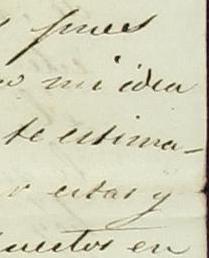 pues
mi idea
te estima-
estas y
puestos en